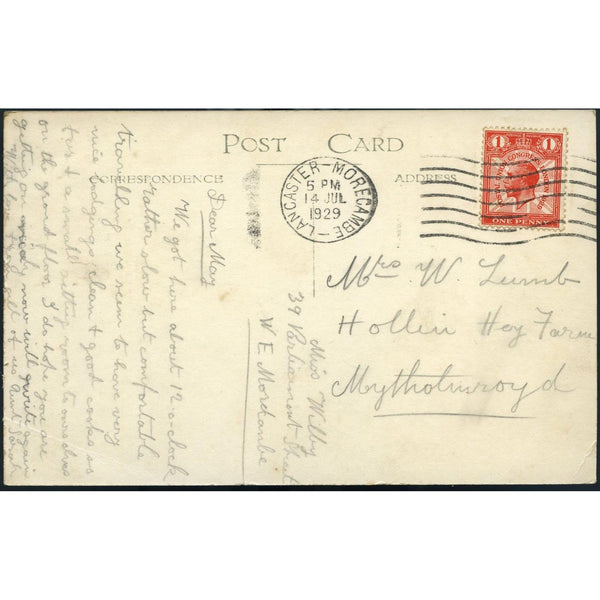 POST CARD
CORRESPONDENCE
ADDRESS
LANCASTER - MORECAMBE
5 PM
14 JUL
1929
1 1
POSTAL UNION CONGRESS LONDON 1929
ONE PENNY
Mrs W. Lumb
Hollin Hey Farm
Mytholmroyd
Miss Wilby
39 Parliament Street
W. E. Morecambe
Dear May
We got here about 12-o-clock
rather slow but comfortable
travelling we seem to have very
nice lodgings clean & good cooks is
& small sitting room to ourselves
on the ground floor. I do hope you are
getting on nicely now will write again
With love from all of us Aunt